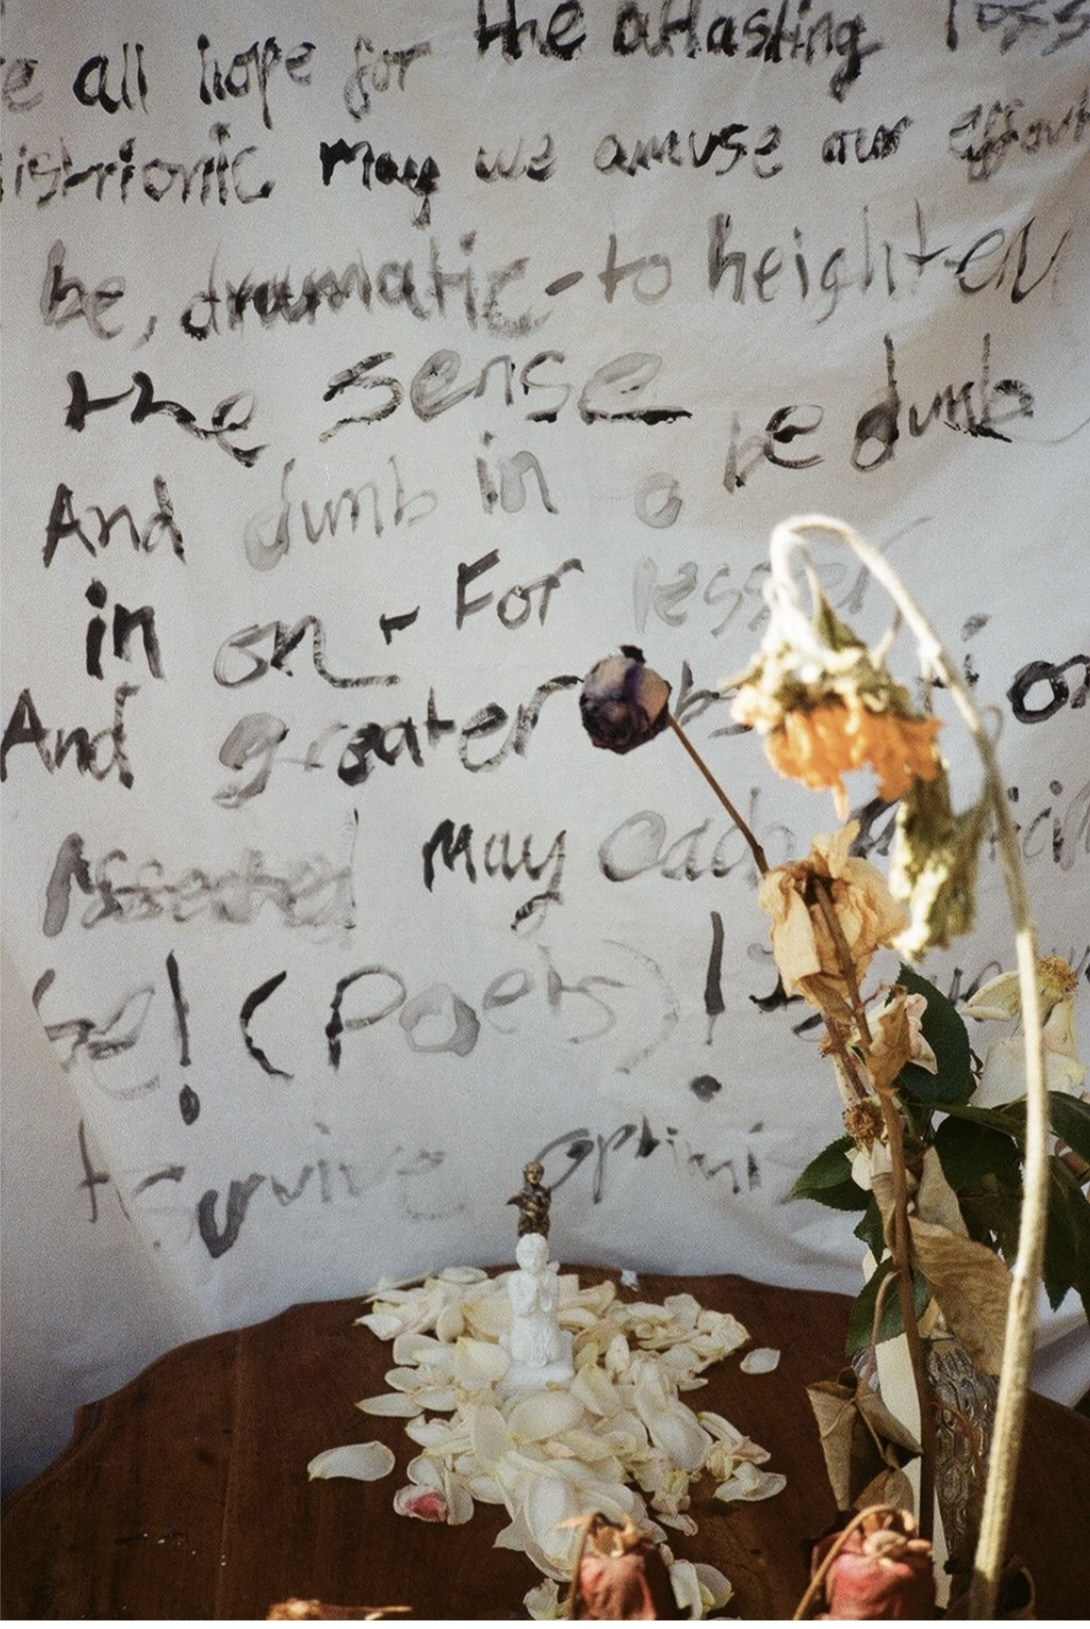 all hope for the atlasting loss
istrionic May we amuse our
be, dramatic - to heighten
the sense
be dumb
And dumb in a
in on - For lesser
And greater
Assented May each
se! (Poets)!
survive optimis